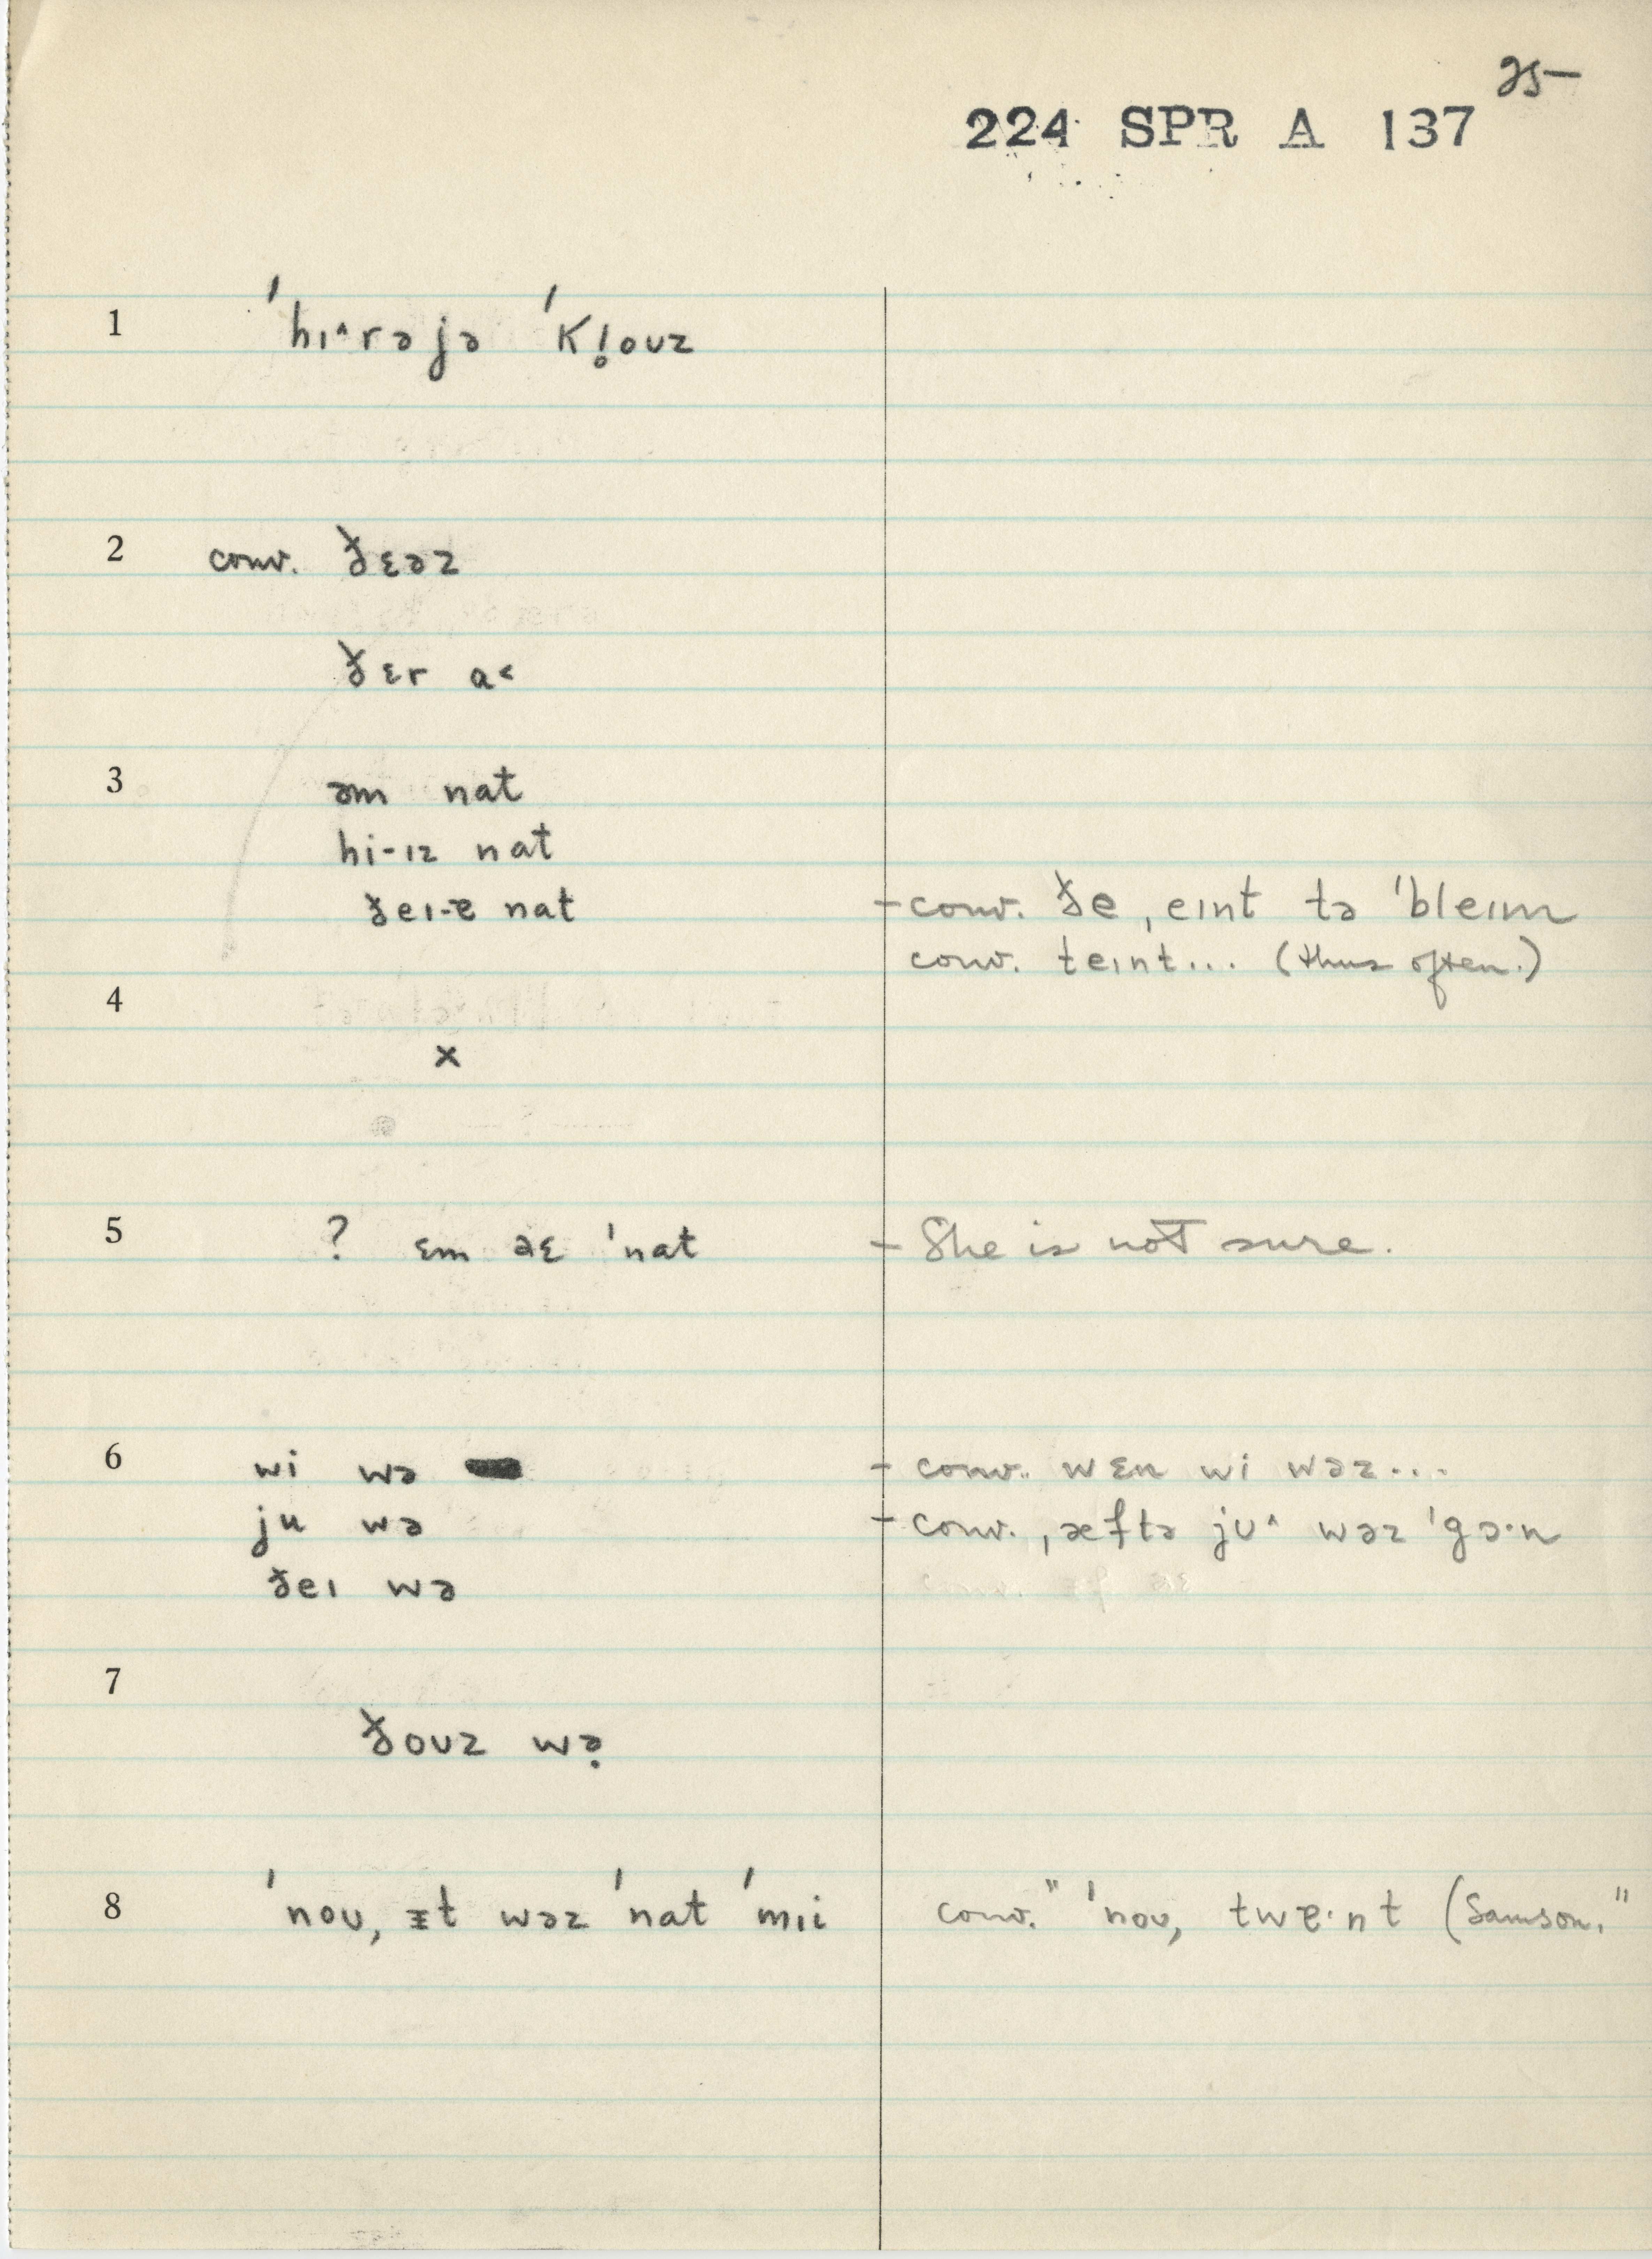 25–
224 SPR A 137
1 ˈhɪ^rəjə ˈkl̥oʊz
2 conv. ðɛəz
ðɛr ɑ<
3 əm nat
hi-ɪz nat
ðeɪ-ɐ nat – conv. ðe ˌeɪnt tə ˈbleɪm
conv. teɪnt... (thus often.)
4
x
5 ? ɛm əɛ ˈnat – She is not sure.
6 wi wə – conv. wɛn wi wəz...
ju wə – conv. ˌæftə jʊ^ wəz ˈgɔ·n
ðeɪ wə
7
ðoʊz wə̣
8 ˈnoʊ, ɪt wəz ˈnat ˈmɪi conv. " ˈnoʊ, twɐ·nt (Samson."